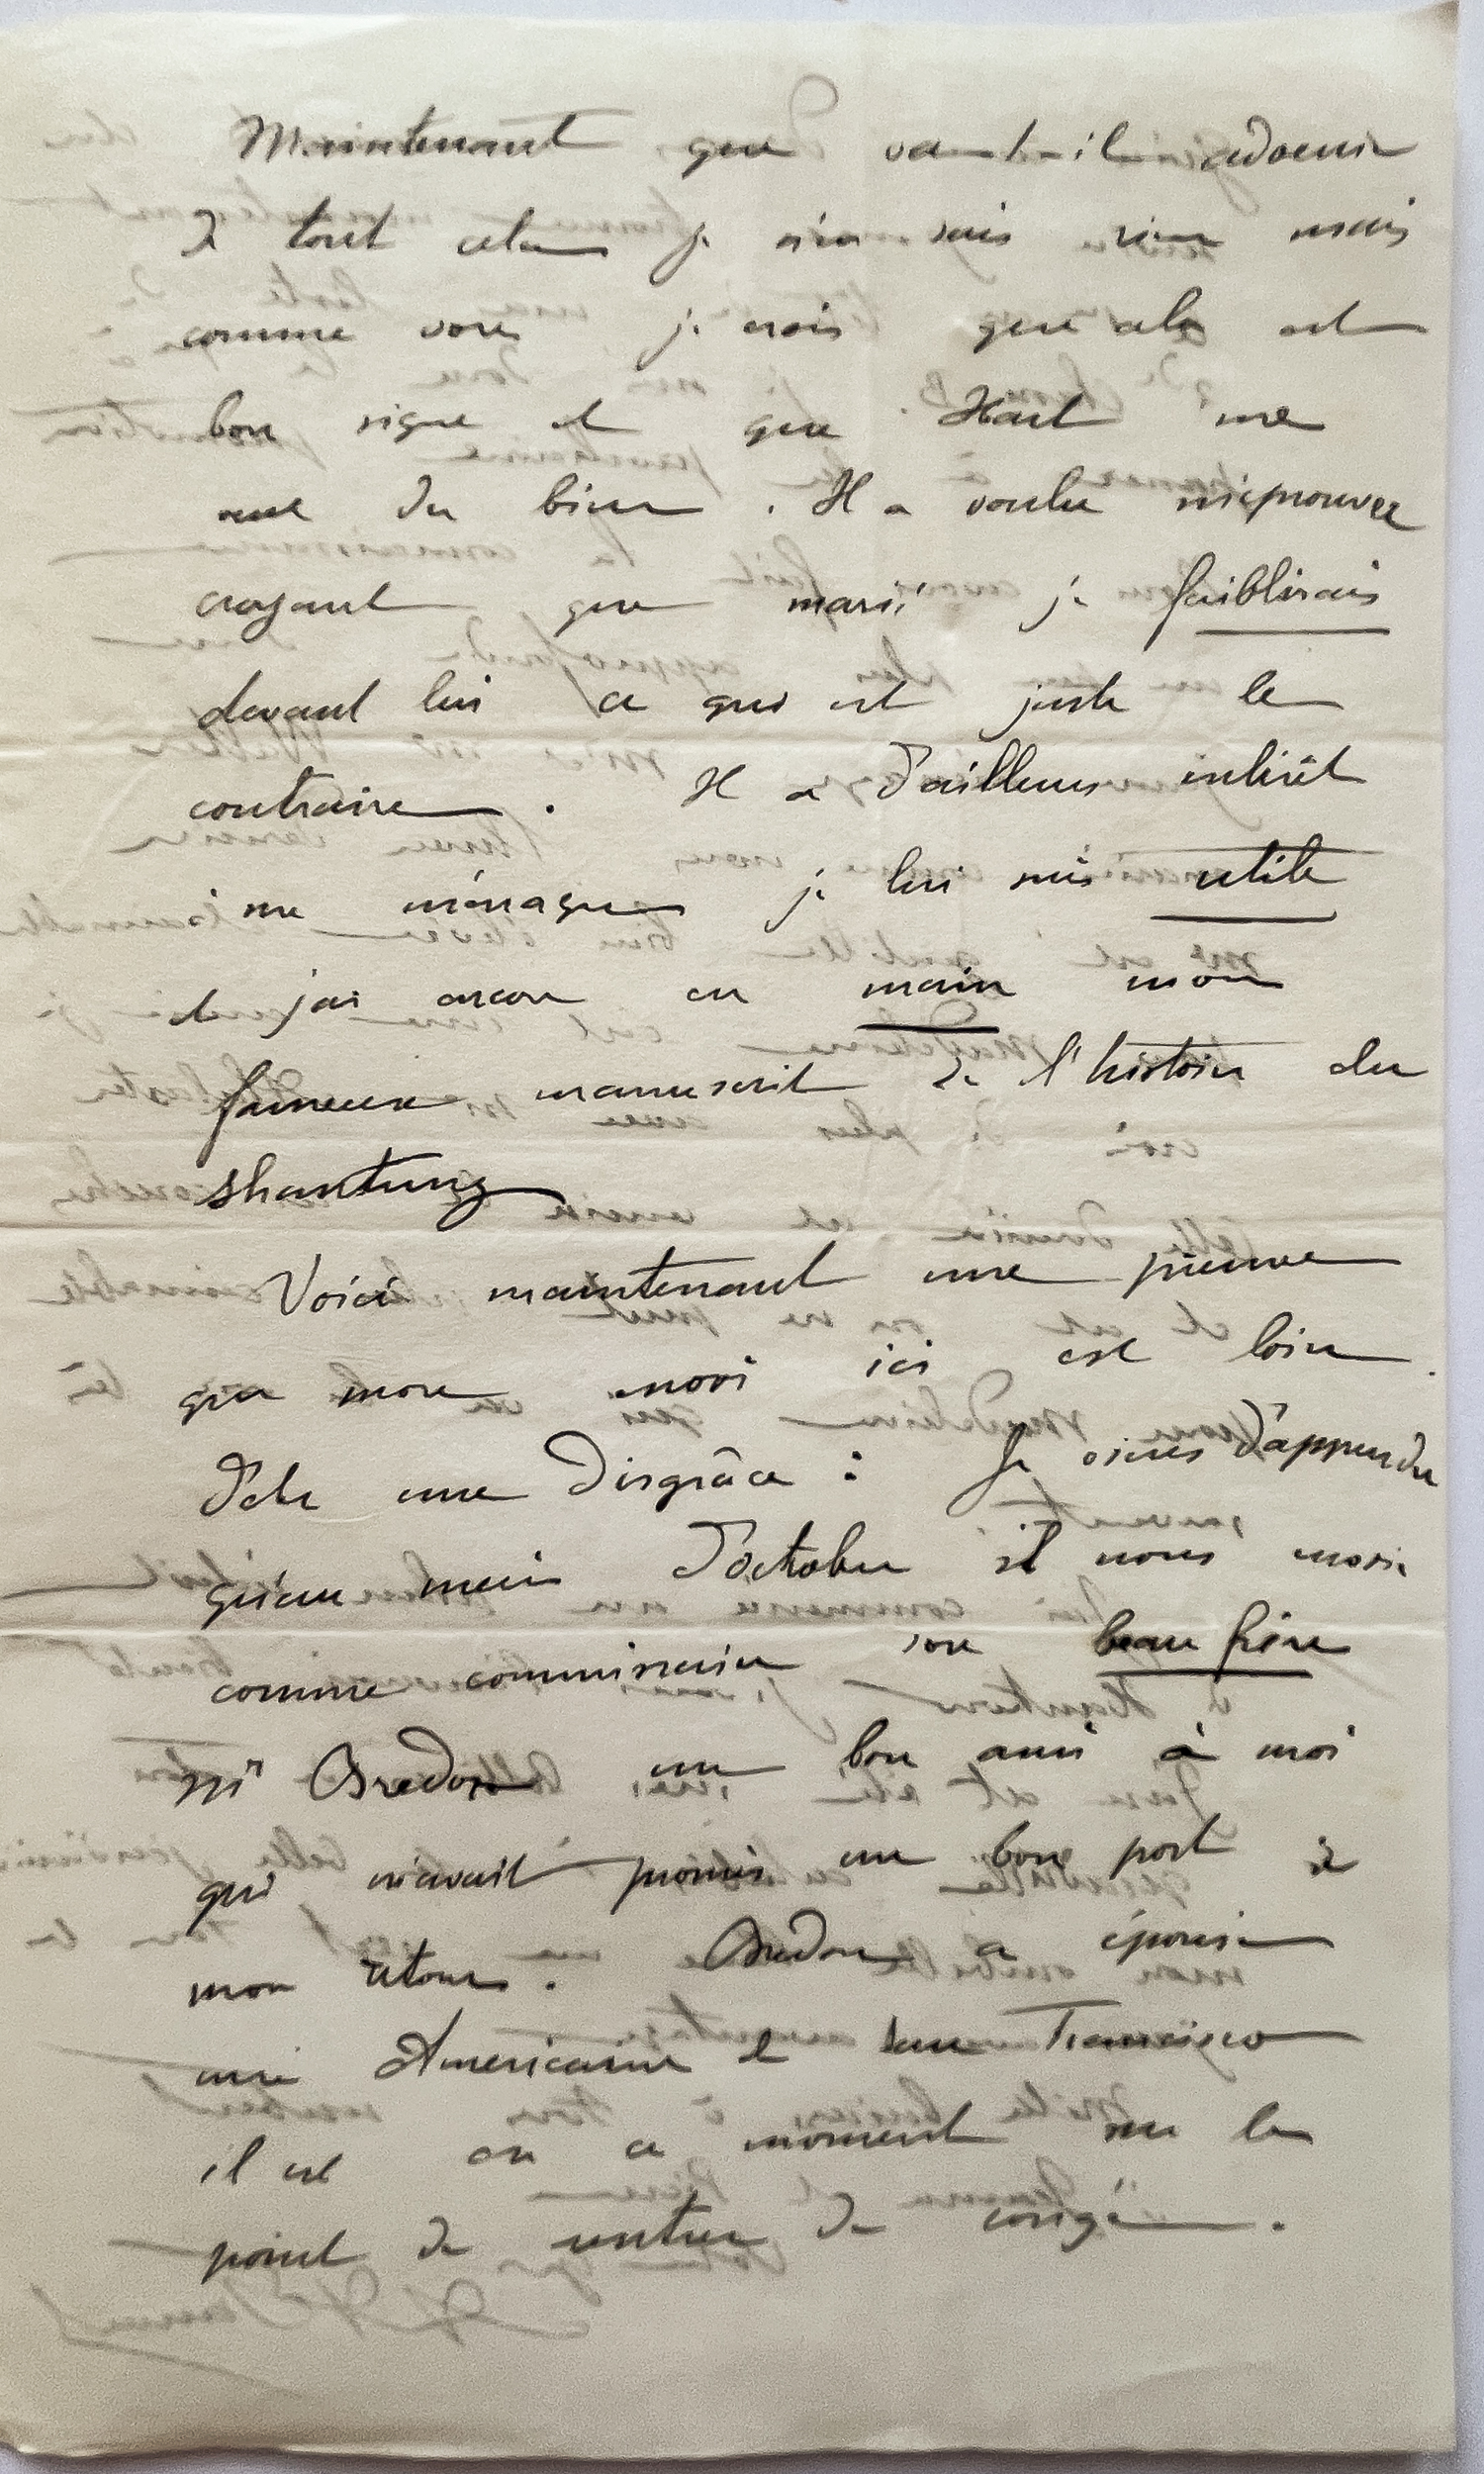 Maintenant que va-t-il advenir
de tout cela je n'en sais rien mais
comme vous je crois que cela est
bon signe et que Hart me
veut du bien. Il a voulu m'éprouver
croyant que marié je faiblirais
devant lui ce qui est juste le
contraire. Il a d'ailleurs intérêt
à me ménager je lui suis utile
et j'ai encore en main mon
fameux manuscrit de l'histoire du
Shantung
Voici maintenant une preuve
que mon envoi ici est loin
d'etre une disgrâce : Je viens d'apprendre
qu'au mois d'octobre il nous envoie
comme commissaire son beau frère
Mr Bredon un bon ami à moi
qui m'avait promis un bon port à
mon retour. Bredon a épousé
une Américaine de San Francisco
il est en ce moment sur le
point de rentrer de congé.